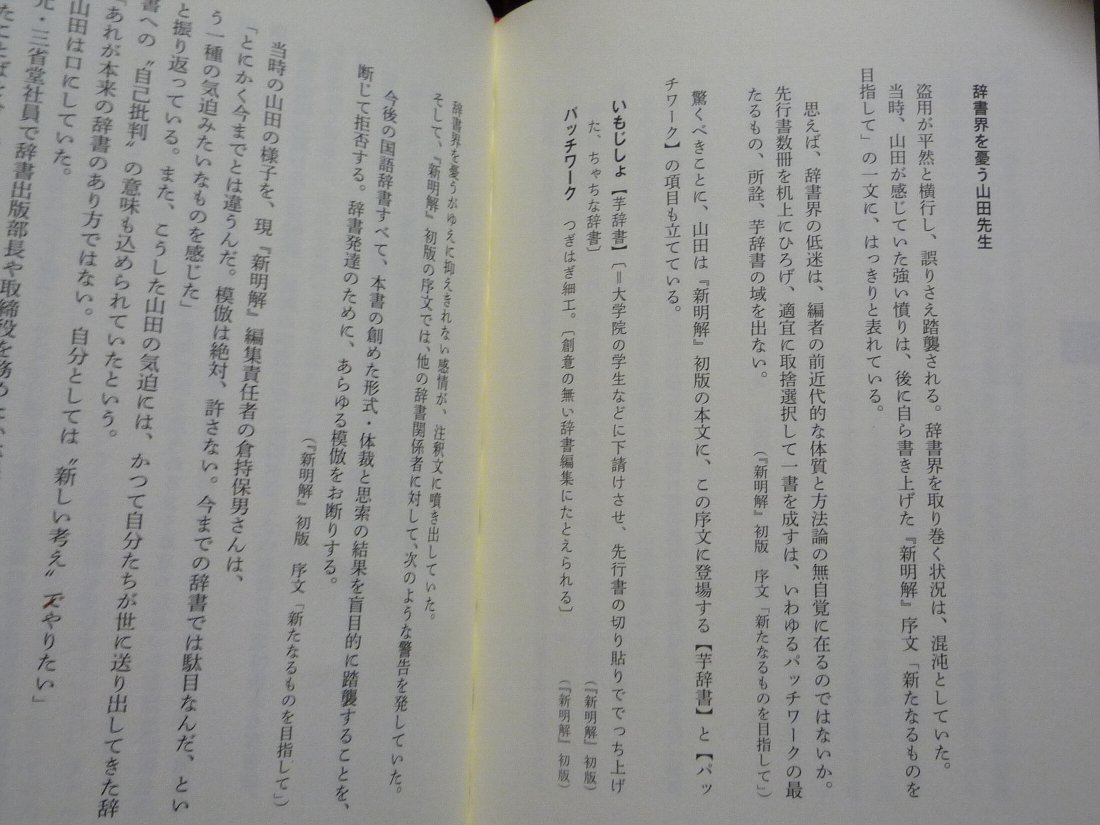 辞書界を憂う山田先生
盗用が平然と横行し、誤りさえ踏襲される。辞書界を取り巻く状況は、混沌としていた。
当時、山田が感じていた強い憤りは、後に自ら書き上げた『新明解』序文「新たなるものを
目指して」の一文に、はっきりと表れている。
思えば、辞書界の低迷は、編者の前近代的な体質と方法論の無自覚に在るのではないか。
先行書数冊を机上にひろげ、適宜に取捨選択して一書を成すは、いわゆるパッチワークの最
たるもの、所詮、芋辞書の域を出ない。
(『新明解』初版 序文「新たなるものを目指して」)
驚くべきことに、山田は『新明解』初版の本文に、この序文に登場する【芋辞書】と【パッ
チワーク】の項目も立てている。
いもじしょ【芋辞書】〔=大学院の学生などに下請けさせ、先行書の切り貼りででっち上げ
た、ちゃちな辞書〕
(『新明解』初版)
パッチワーク つぎはぎ細工。〔創意の無い辞書編集にたとえられる〕
(『新明解』初版)
辞書界を憂うがゆえに抑えきれない感情が、注釈文に噴き出していた。
そして、『新明解』初版の序文では、他の辞書関係者に対して、次のような警告を発していた。
今後の国語辞書すべて、本書の創めた形式・体裁と思索の結果を盲目的に踏襲することを、
断じて拒否する。辞書発達のために、あらゆる模倣をお断りする。
(『新明解』初版 序文「新たなるものを目指して」)
当時の山田の様子を、現『新明解』編集責任者の倉持保男さんは、
「とにかく今までとは違うんだ。模倣は絶対、許さない。今までの辞書では駄目なんだ、とい
う一種の気迫みたいなものを感じた」
と振り返っている。また、こうした山田の気迫には、かつて自分たちが世に送り出してきた辞
書への〝自己批判〟の意味も込められていたという。
「あれが本来の辞書のあり方ではない。自分としては〝新しい考え〟でやりたい」
山田は口にしていた。
元・三省堂社員で辞書出版部長や取締役を務め
たことば